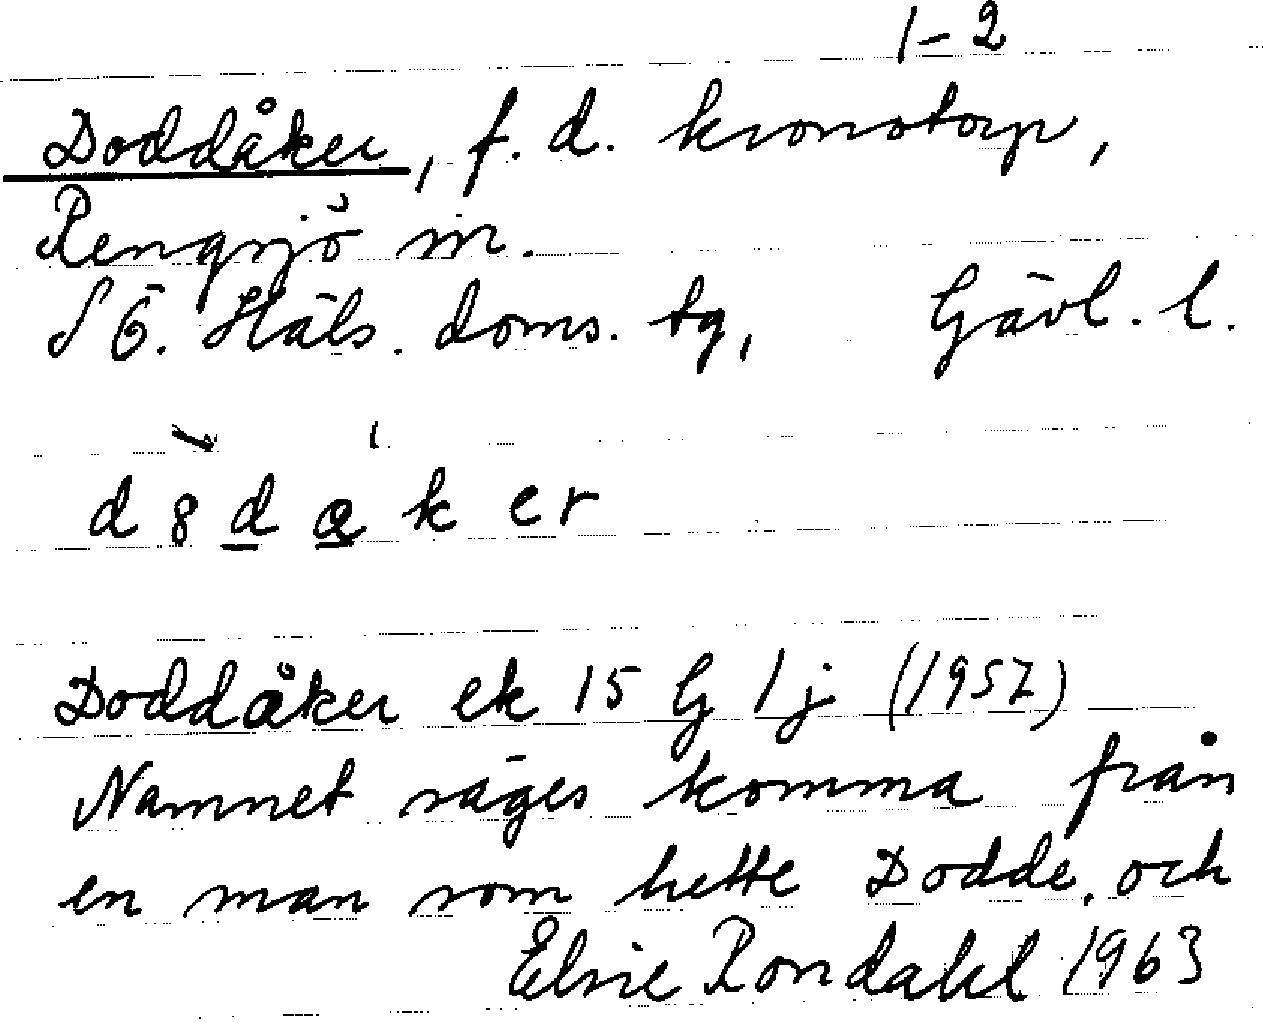 1-2
Doddåker, f. d. kronotorp,
Rengsjö sn.
SÖ. Häls. doms. tg, Gävl. l.
d 8 d a k er
Doddåker ek 15 G 1 j (1957)
Namnet säges komma från
en man som hette Dodde, och
Elsie Rondahl 1963